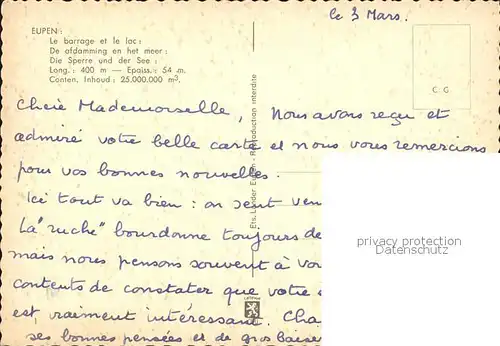 EUPEN:
Le barrage et le lac:
De afdamming en het meer:
Die Sperre und der See:
Long.: 400 m — Epaiss.: 54 m.
Conten. Inhoud: 25.000.000 m³.
le 3 Mars.
C G
Chère Mademoiselle, Nous avons reçu et
admiré votre belle carte et nous vous remercions
pour vos bonnes nouvelles.
Ici tout va bien: on sent
La "ruche" bourdonne toujours
mais nous pensons souvent à
contents de constater que votre
est vraiment intéressant.
ses bonnes pensées et de gros
Ets. Lander Eupen - Reproduction interdite
privacy protection
Datenschutz